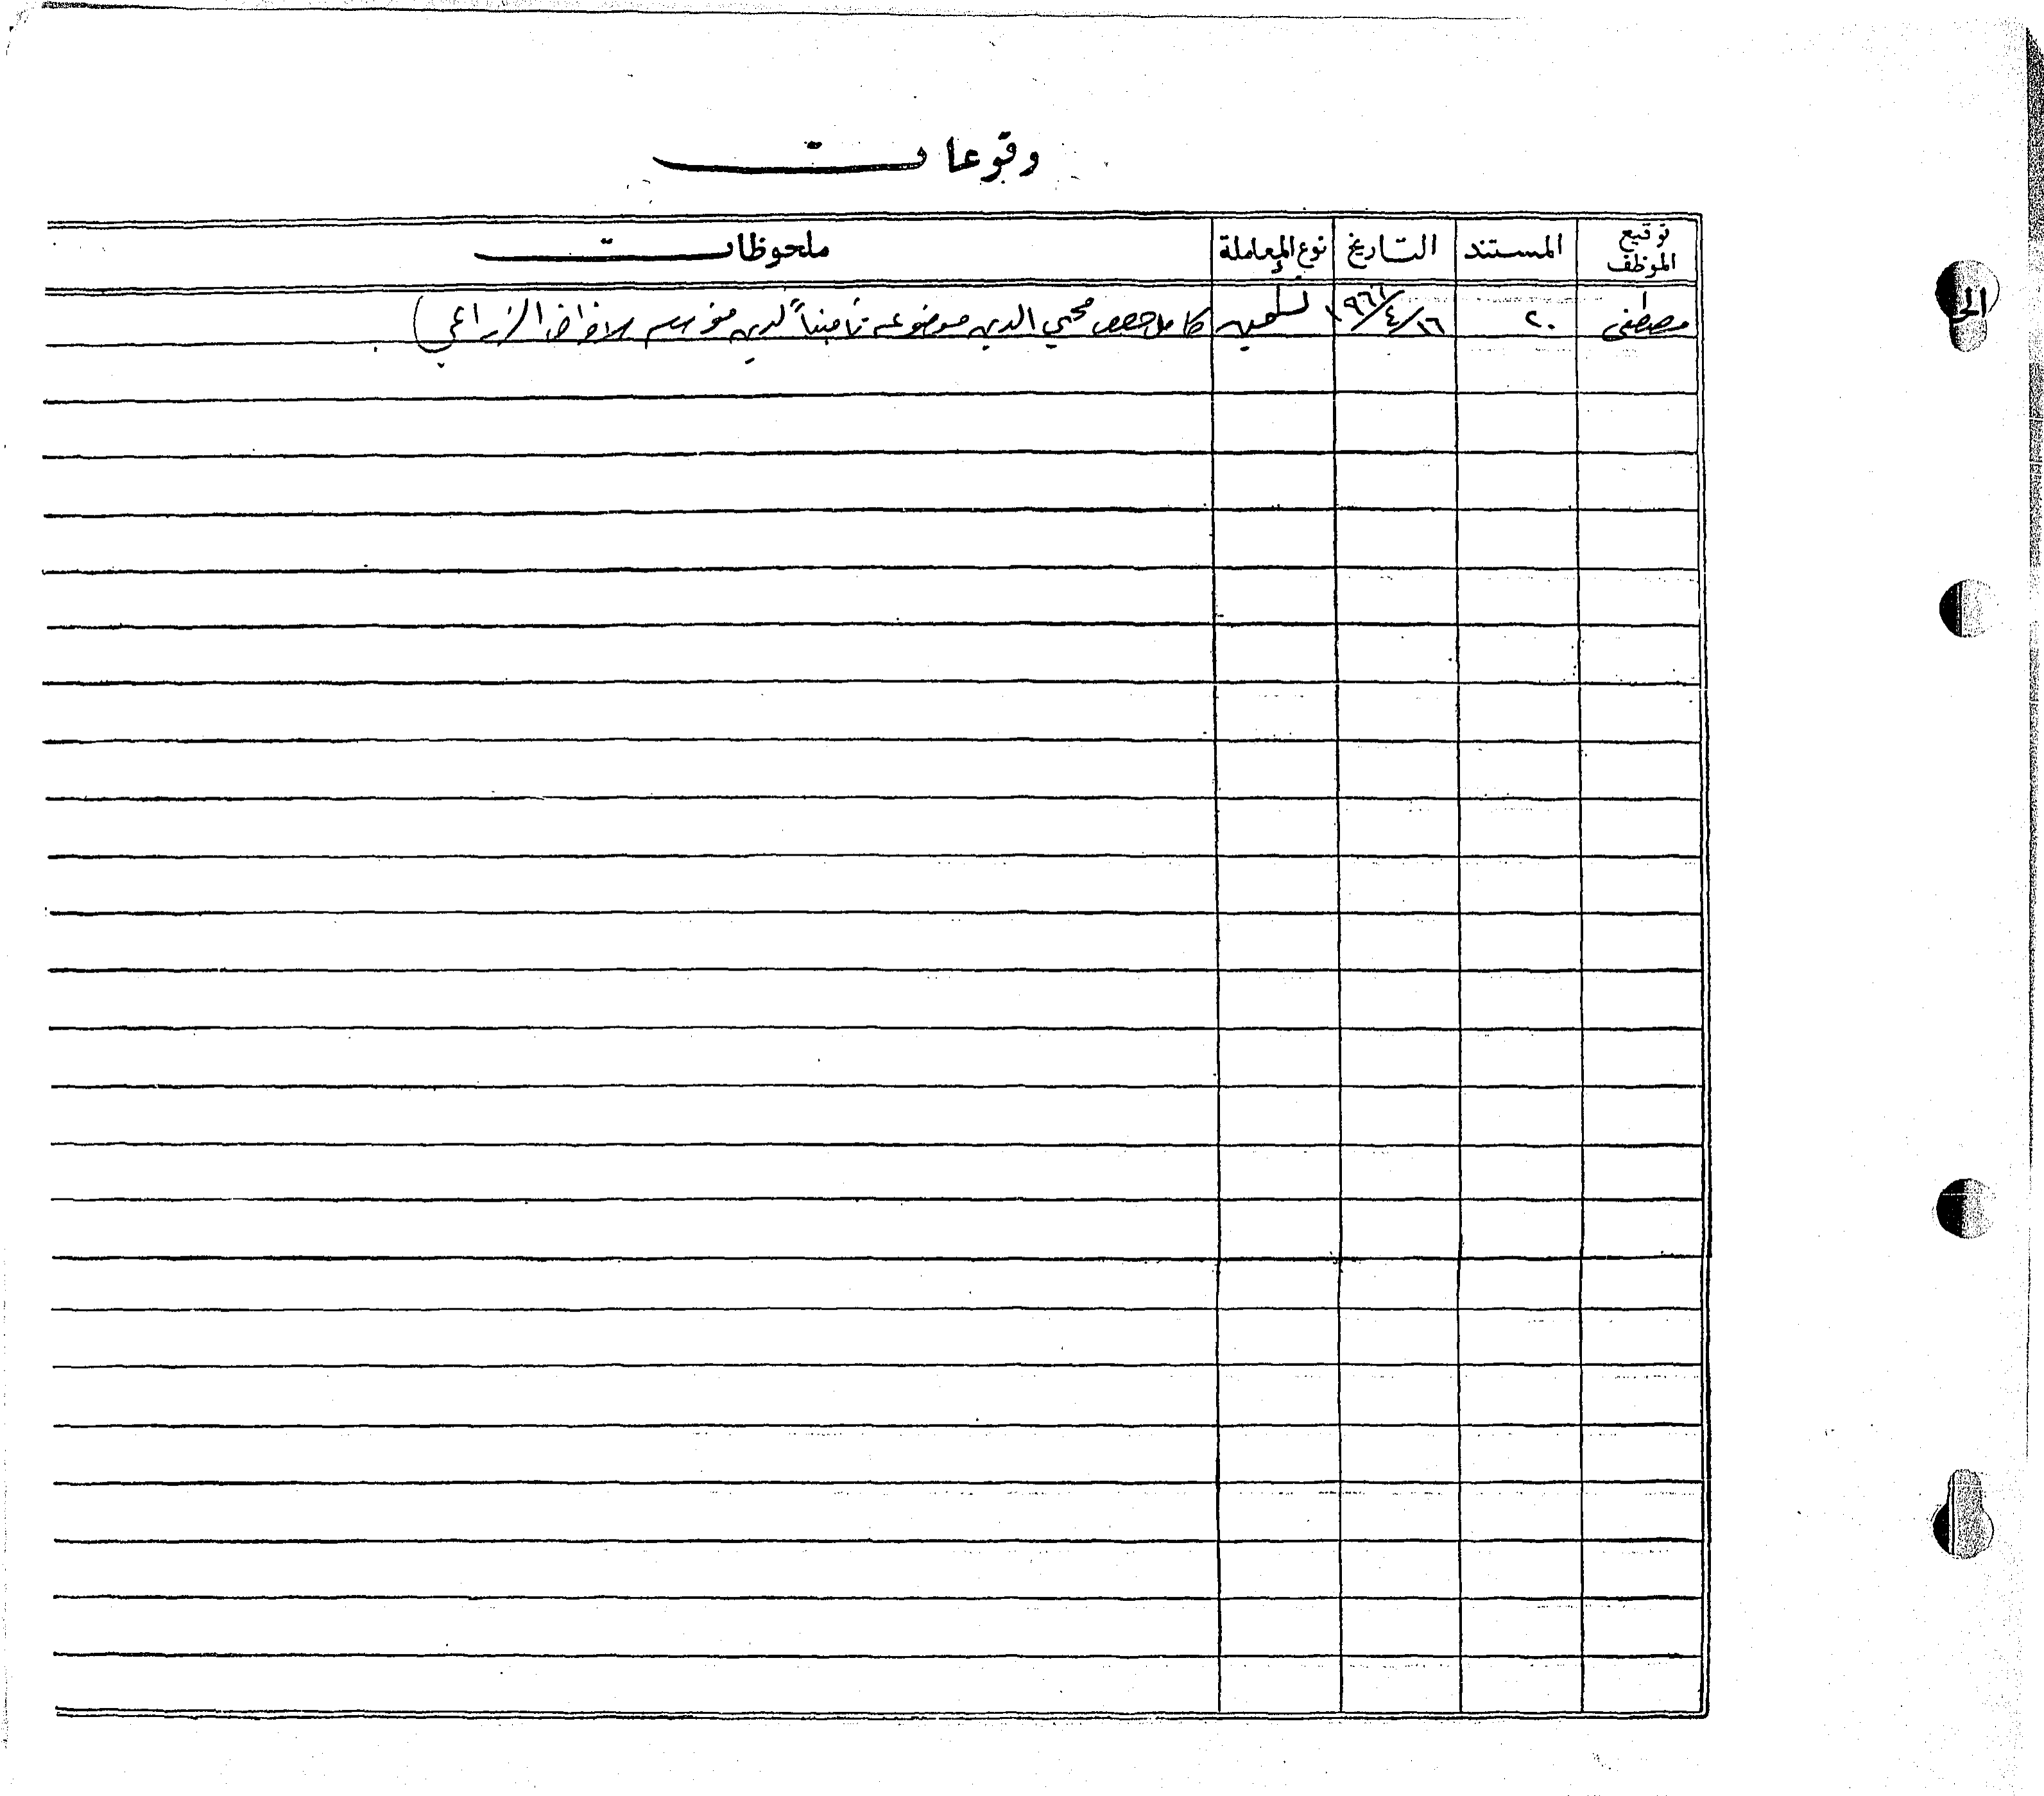 وقوعات
توقيع الموظف المستند التاريخ نوع المعاملة ملحوظات
مصطفى ٢٠ ١٦/٤/٩٦١ كامل حصص محيي الدين موضوعه تأميناً لدى الزراعي)